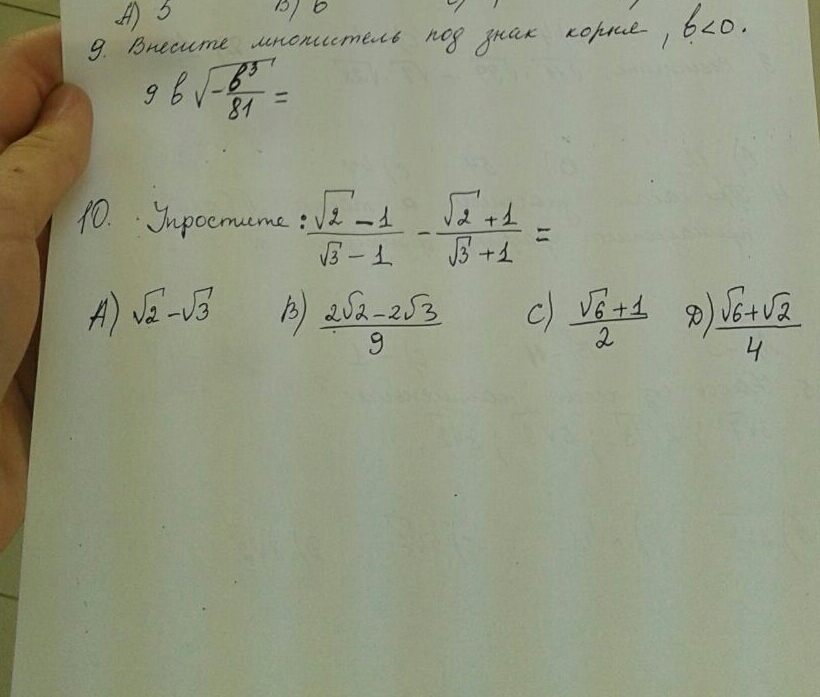 А) 5 В) 6
9. Внесите множитель под знак корня, в<0.
9 в √(-в³/81) =
10. Упростите: (√2 - 1)/(√3 - 1) - (√2 + 1)/(√3 + 1) =
А) √2-√3 В) (2√2-2√3)/9 С) (√6+1)/2 Д) (√6+√2)/4